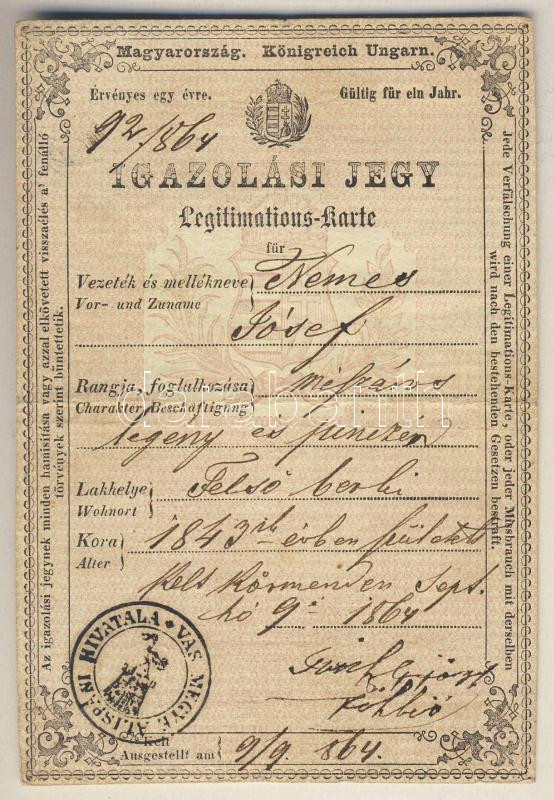 Magyarország. Königreich Ungarn.
Érvényes egy évre. Gültig für ein Jahr.
92/864
IGAZOLÁSI JEGY
Legitimations-Karte
für
Vezeték és mellékneve Nemes
Vor- und Zuname
Jósef
Rangja, foglalkozása mészáros
Charakter, Beschäftigung
legény és pinczér
Lakhelye Felső berki
Wohnort
Kora 1843 évben született
Alter
Kelt Körmenden Sept.
hó 9. 1864
Kelt
Ausgestellt am 9/9. 864.
VAS MEGYE ALISPÁNI HIVATALA
Az igazolási jegynek minden hamisitása vagy azzal elkövetett visszaélés a' fenálló
törvények szerint büntettetik.
Jede Verfälschung einer Legitimations-Karte, oder jeder Missbrauch mit derselben
wird nach den bestehenden Gesetzen bestraft.
darabanth